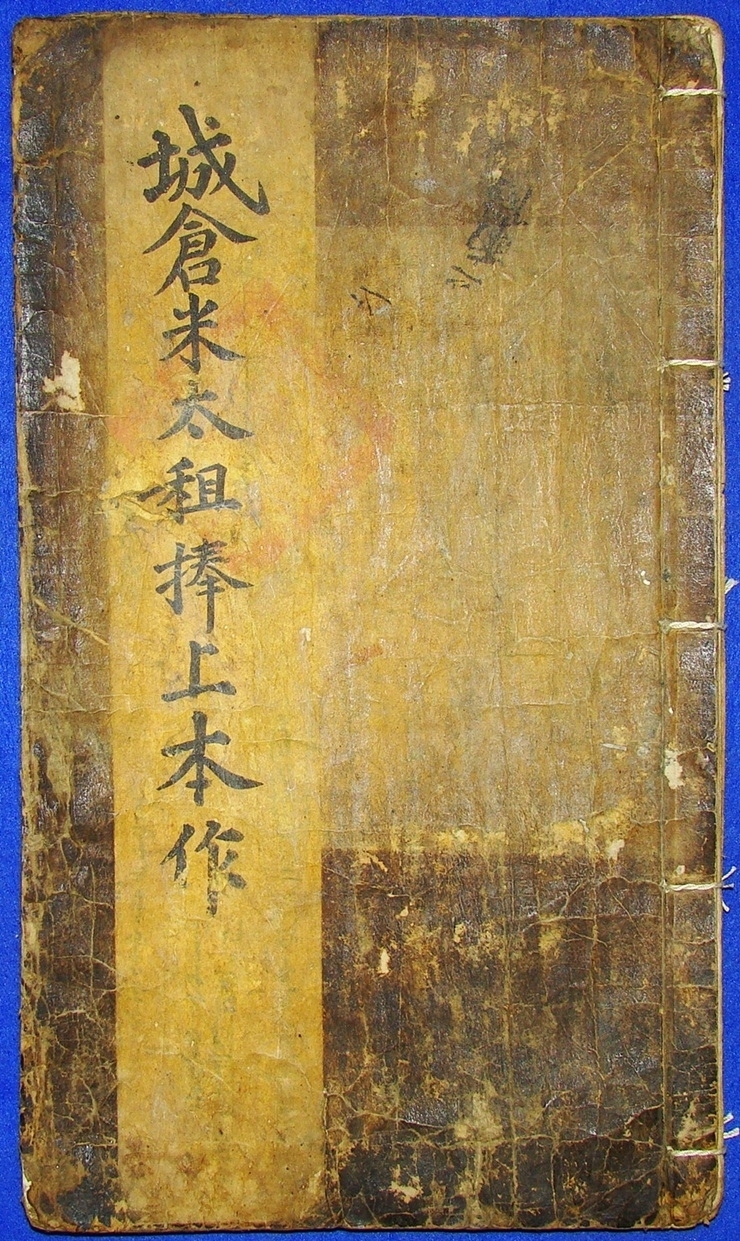 城倉米太租捧上本作